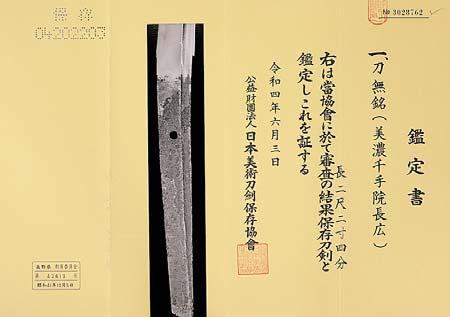 № 3028762
鑑定書
一、刀 無銘(美濃千手院長広)
長二尺二寸四分
右は當協會に於て審査の結果保存刀剣と
鑑定しこれを証する
令和四年六月三日
公益財團法人日本美術刀剣保存協會
保存
04202203
長野県 教育委員会
第 号